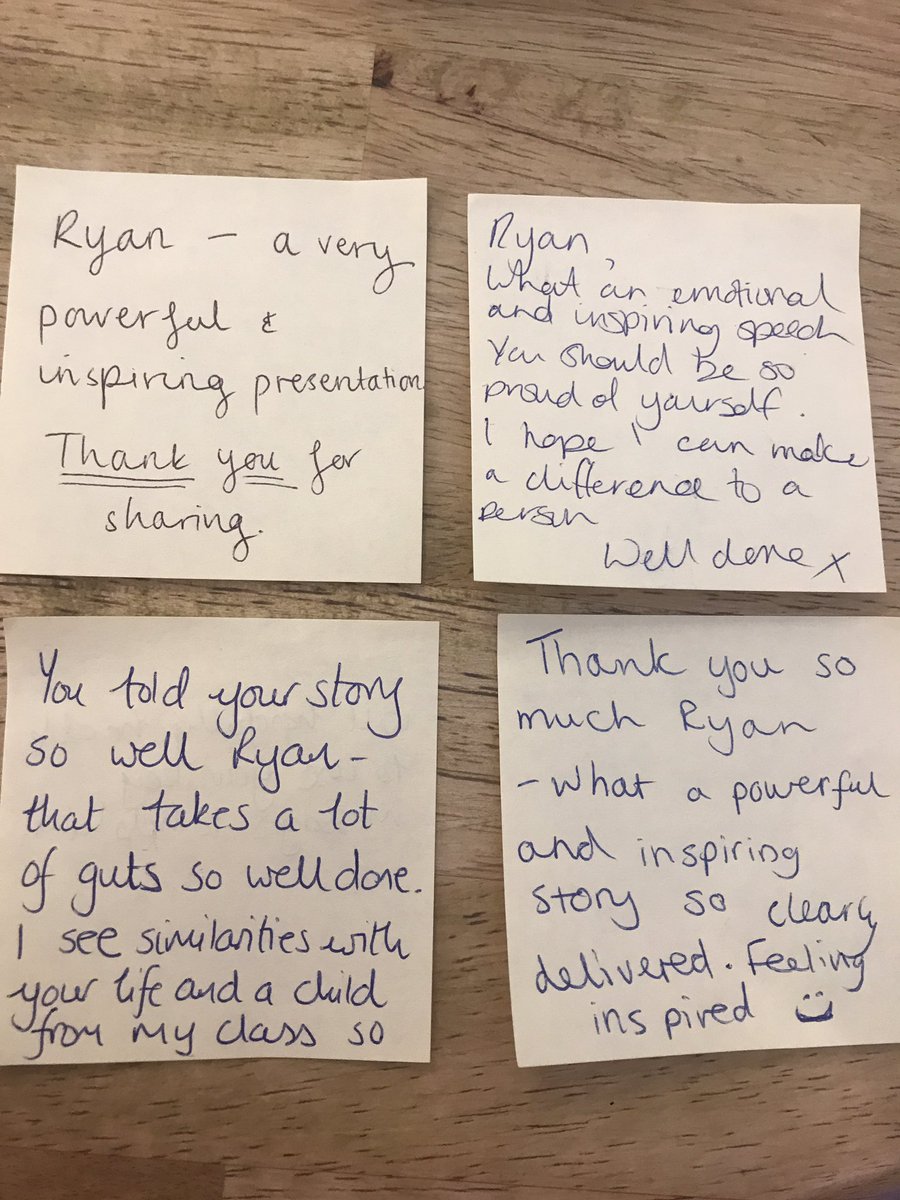 Ryan – a very
powerful &
inspiring presentation
Thank you for
sharing.
Ryan,
What an emotional
and inspiring speech
You should be so
proud of yourself.
I hope I can make
a difference to a
person
Well done x
You told your story
so well Ryan –
that takes a lot
of guts so well done.
I see similarities with
your life and a child
from my class so
Thank you so
much Ryan
– What a powerful
and inspiring
story so clearly
delivered. Feeling
inspired